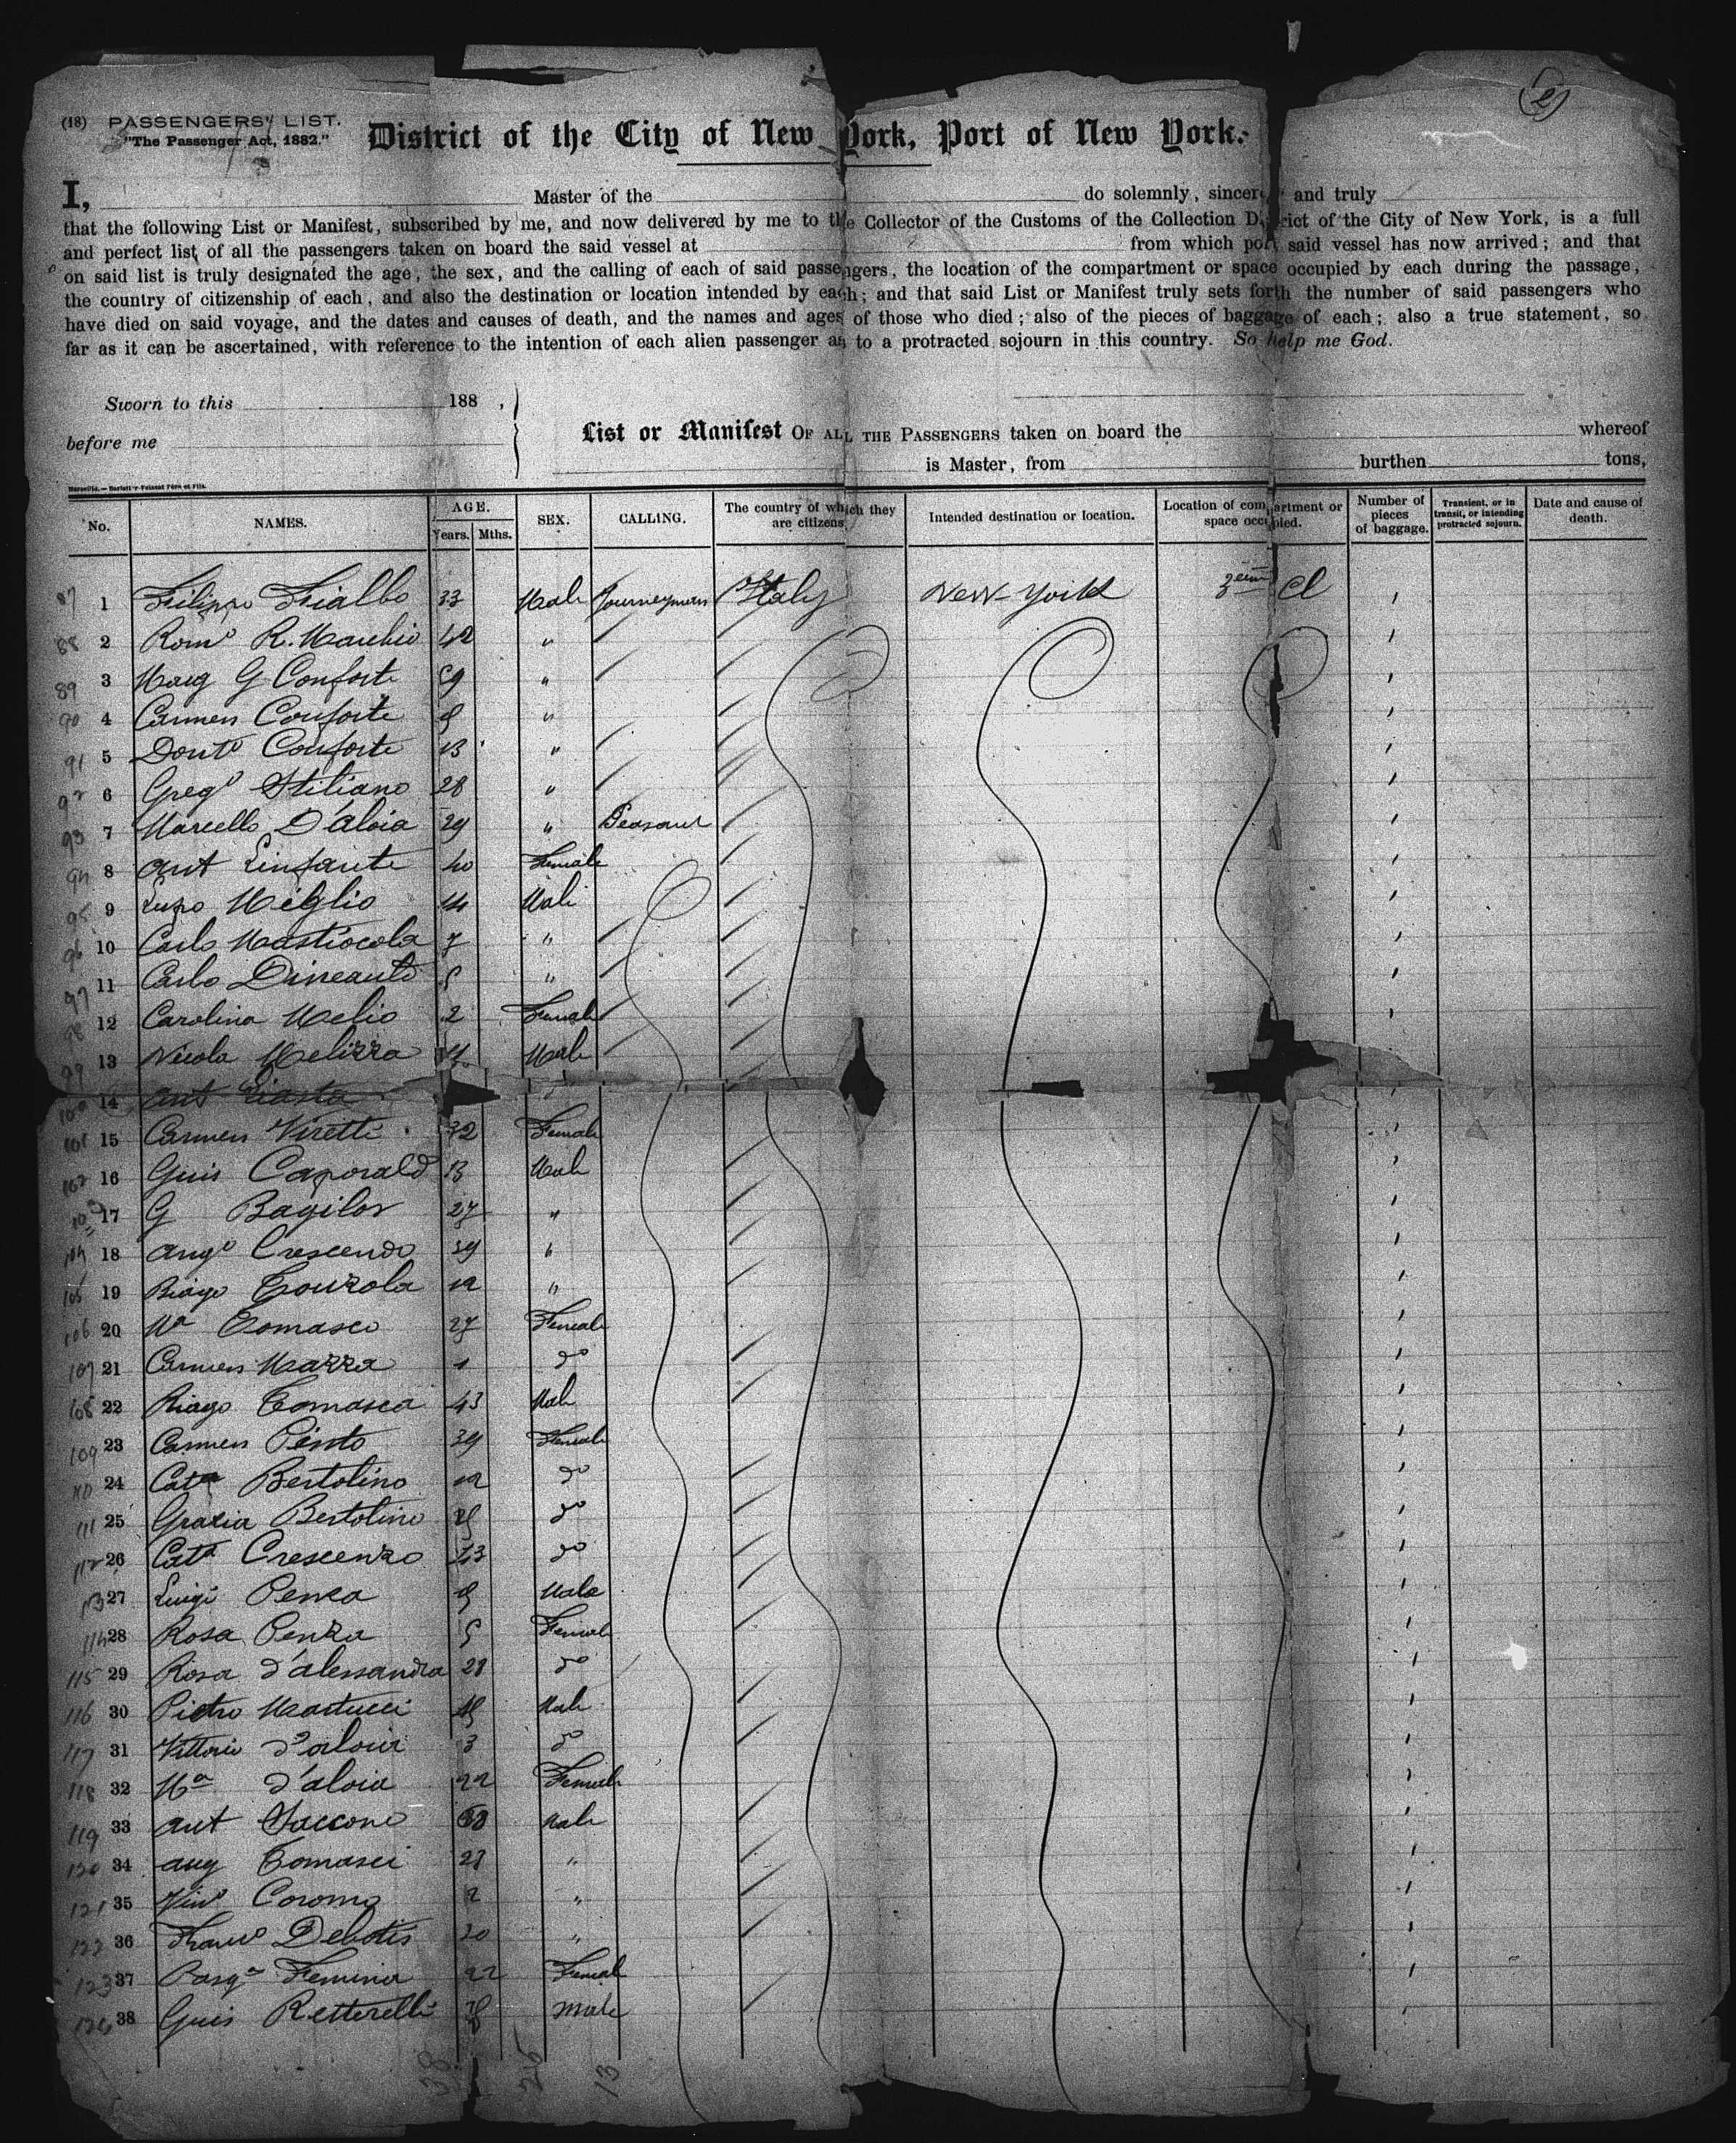 (18) PASSENGERS' LIST.
"The Passenger Act, 1882."
District of the City of New York, Port of New York.
I, Master of the do solemnly, sincerely and truly
that the following List or Manifest, subscribed by me, and now delivered by me to the Collector of the Customs of the Collection District of the City of New York, is a full
and perfect list of all the passengers taken on board the said vessel at from which port said vessel has now arrived; and that
on said list is truly designated the age, the sex, and the calling of each of said passengers, the location of the compartment or space occupied by each during the passage,
the country of citizenship of each, and also the destination or location intended by each; and that said List or Manifest truly sets forth the number of said passengers who
have died on said voyage, and the dates and causes of death, and the names and ages of those who died; also of the pieces of baggage of each; also a true statement, so
far as it can be ascertained, with reference to the intention of each alien passenger as to a protracted sojourn in this country. So help me God.
Sworn to this 188 ,
before me
List or Manifest OF ALL THE PASSENGERS taken on board the whereof
is Master, from burthen tons,
No. NAMES. AGE. Years. Mths. SEX. CALLING. The country of which they are citizens. Intended destination or location. Location of compartment or space occupied. Number of pieces of baggage. Transient, or in transit, or intending protracted sojourn. Date and cause of death.
87 1 Filippo Fiallo 33 Male Journeyman Italy New-York 3em Cl
88 2 Romo R. Marchio 42 "
89 3 Marg G Conforte "
90 4 Carmen Conforte "
91 5 Donto Conforte 13 "
92 6 Grego Stiliano 28 "
93 7 Marcello D'aloia 29 " Peasant
94 8 Ant Linfante 40 Female
95 9 Miglio 14 Male
96 10 Carlo Mastiocola 7 "
97 11 Carlo "
98 12 Carolina Melio 2 Female
99 13 Nicola Melizza Male
100 14 Ant
101 15 Carmen Viretti 32 Female
102 16 Guis Caporald 13 Male
103 17 G Bagilos 27 "
104 18 Ango Crescendo 39 "
105 19 Biago "
106 20 Ma Comasco 27 Female
107 21 Carmen Mazza 1 do
108 22 Biago Tomasca 43 Male
109 23 Carmen Pinto 39 Female
110 24 Cata Bertolino 12 do
111 25 Grazia Bertolino do
112 26 Cata Crescenzo do
113 27 Luigi Penza Male
114 28 Rosa Penza 5 Female
115 29 Rosa d'alessandra 28 do
116 30 Pietro Martucci Male
117 31 Vittorio d'aloia 3 do
118 32 Ma d'aloia 22 Female
119 33 Ant Saccone Male
120 34 Aug Tomasci 28 "
121 35 Vino Coromo 2 "
122 36 Franco Debotis 20 "
123 37 Pasqa Femina 22 Female
124 38 Guis Retterelli Male